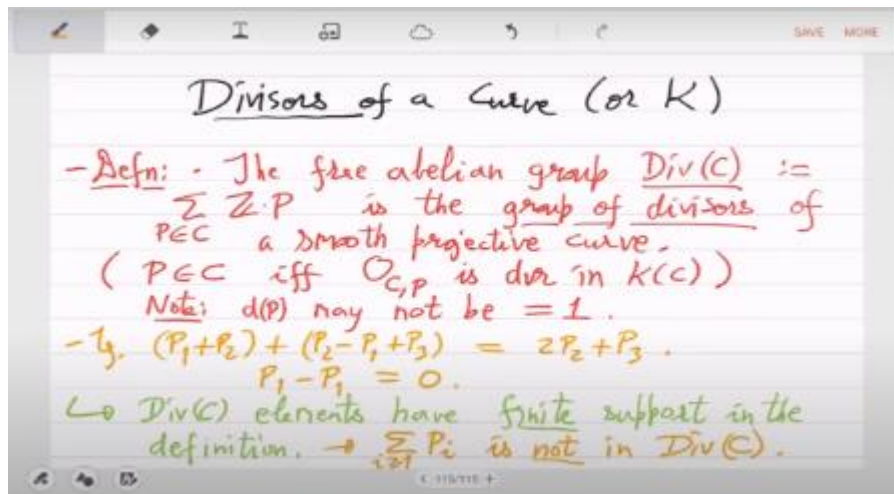 SAVE MORE
Divisors of a Curve (or K)
- Defn: · The free abelian group Div(C) :=
∑ ℤ·P is the group of divisors of
P∈C a smooth projective curve.
( P∈C iff O_{C,P} is dvr in K(C) )
Note: d(P) may not be = 1.
- Eg. (P₁+P₂) + (P₂-P₁+P₃) = 2P₂+P₃.
P₁-P₁ = 0.
↳ Div(C) elements have finite support in the
definition. → ∑ Pᵢ is not in Div(C).
i≥1